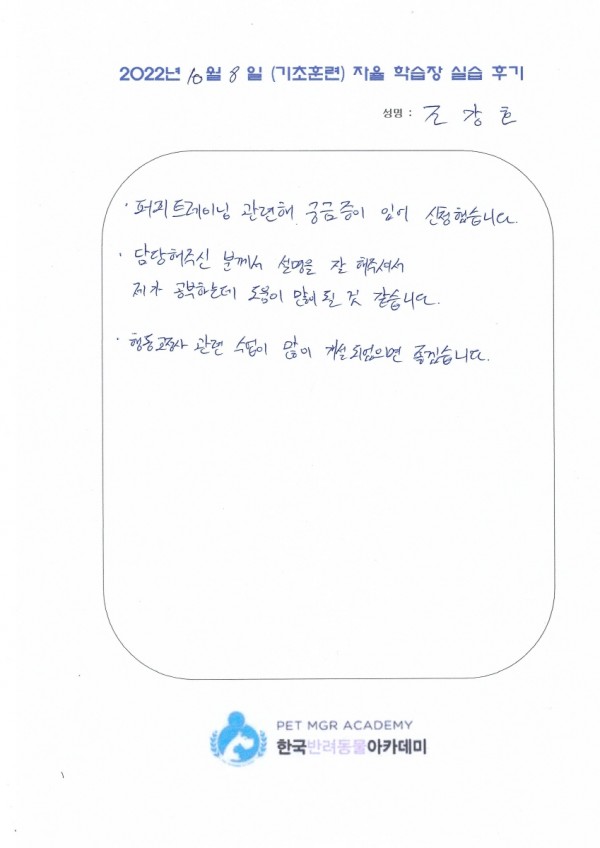 2022년 10월 8일 (기초훈련) 자율 학습장 실습 후기
성명 : 조 강 흔
· 퍼피트레이닝 관련해 궁금증이 있어 신청했습니다.
· 담당해주신 분께서 설명을 잘 해주셔서
제가 공부하는데 도움이 많이 될 것 같습니다.
· 행동교정사 관련 수업이 많이 개설되었으면 좋겠습니다.
PET MGR ACADEMY
한국반려동물아카데미